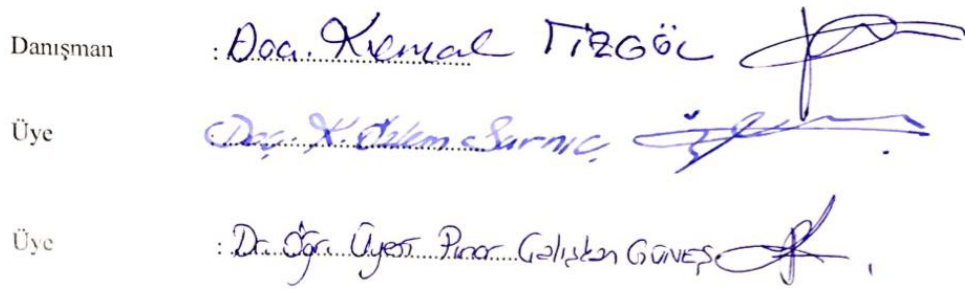 Danışman : Doç. Kemal TİZGÖL
Üye Doç. K. Özlem Sarnıç
Üye : Dr. Öğr. Üyesi Pınar Çalışkan GÜNEŞ